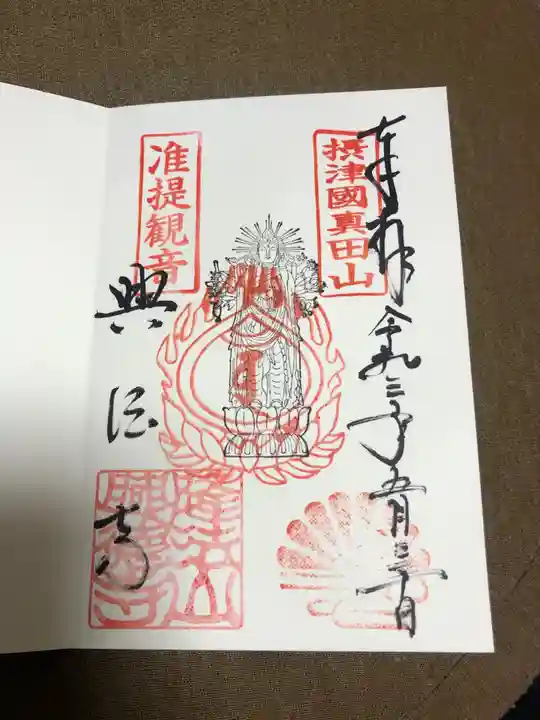 奉拝 令和三年五月三十日
摂津國真田山
准提観音
興德寺